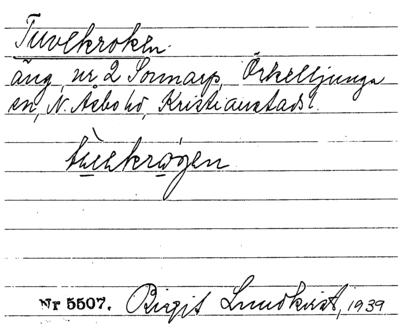 Tuvekroken.
äng, nr 2 Sonnarp, Örkelljunga
sn, N. Åsbo hd, Kristianstads l.
Nr 5507. Birgit Lundkvist, 1939